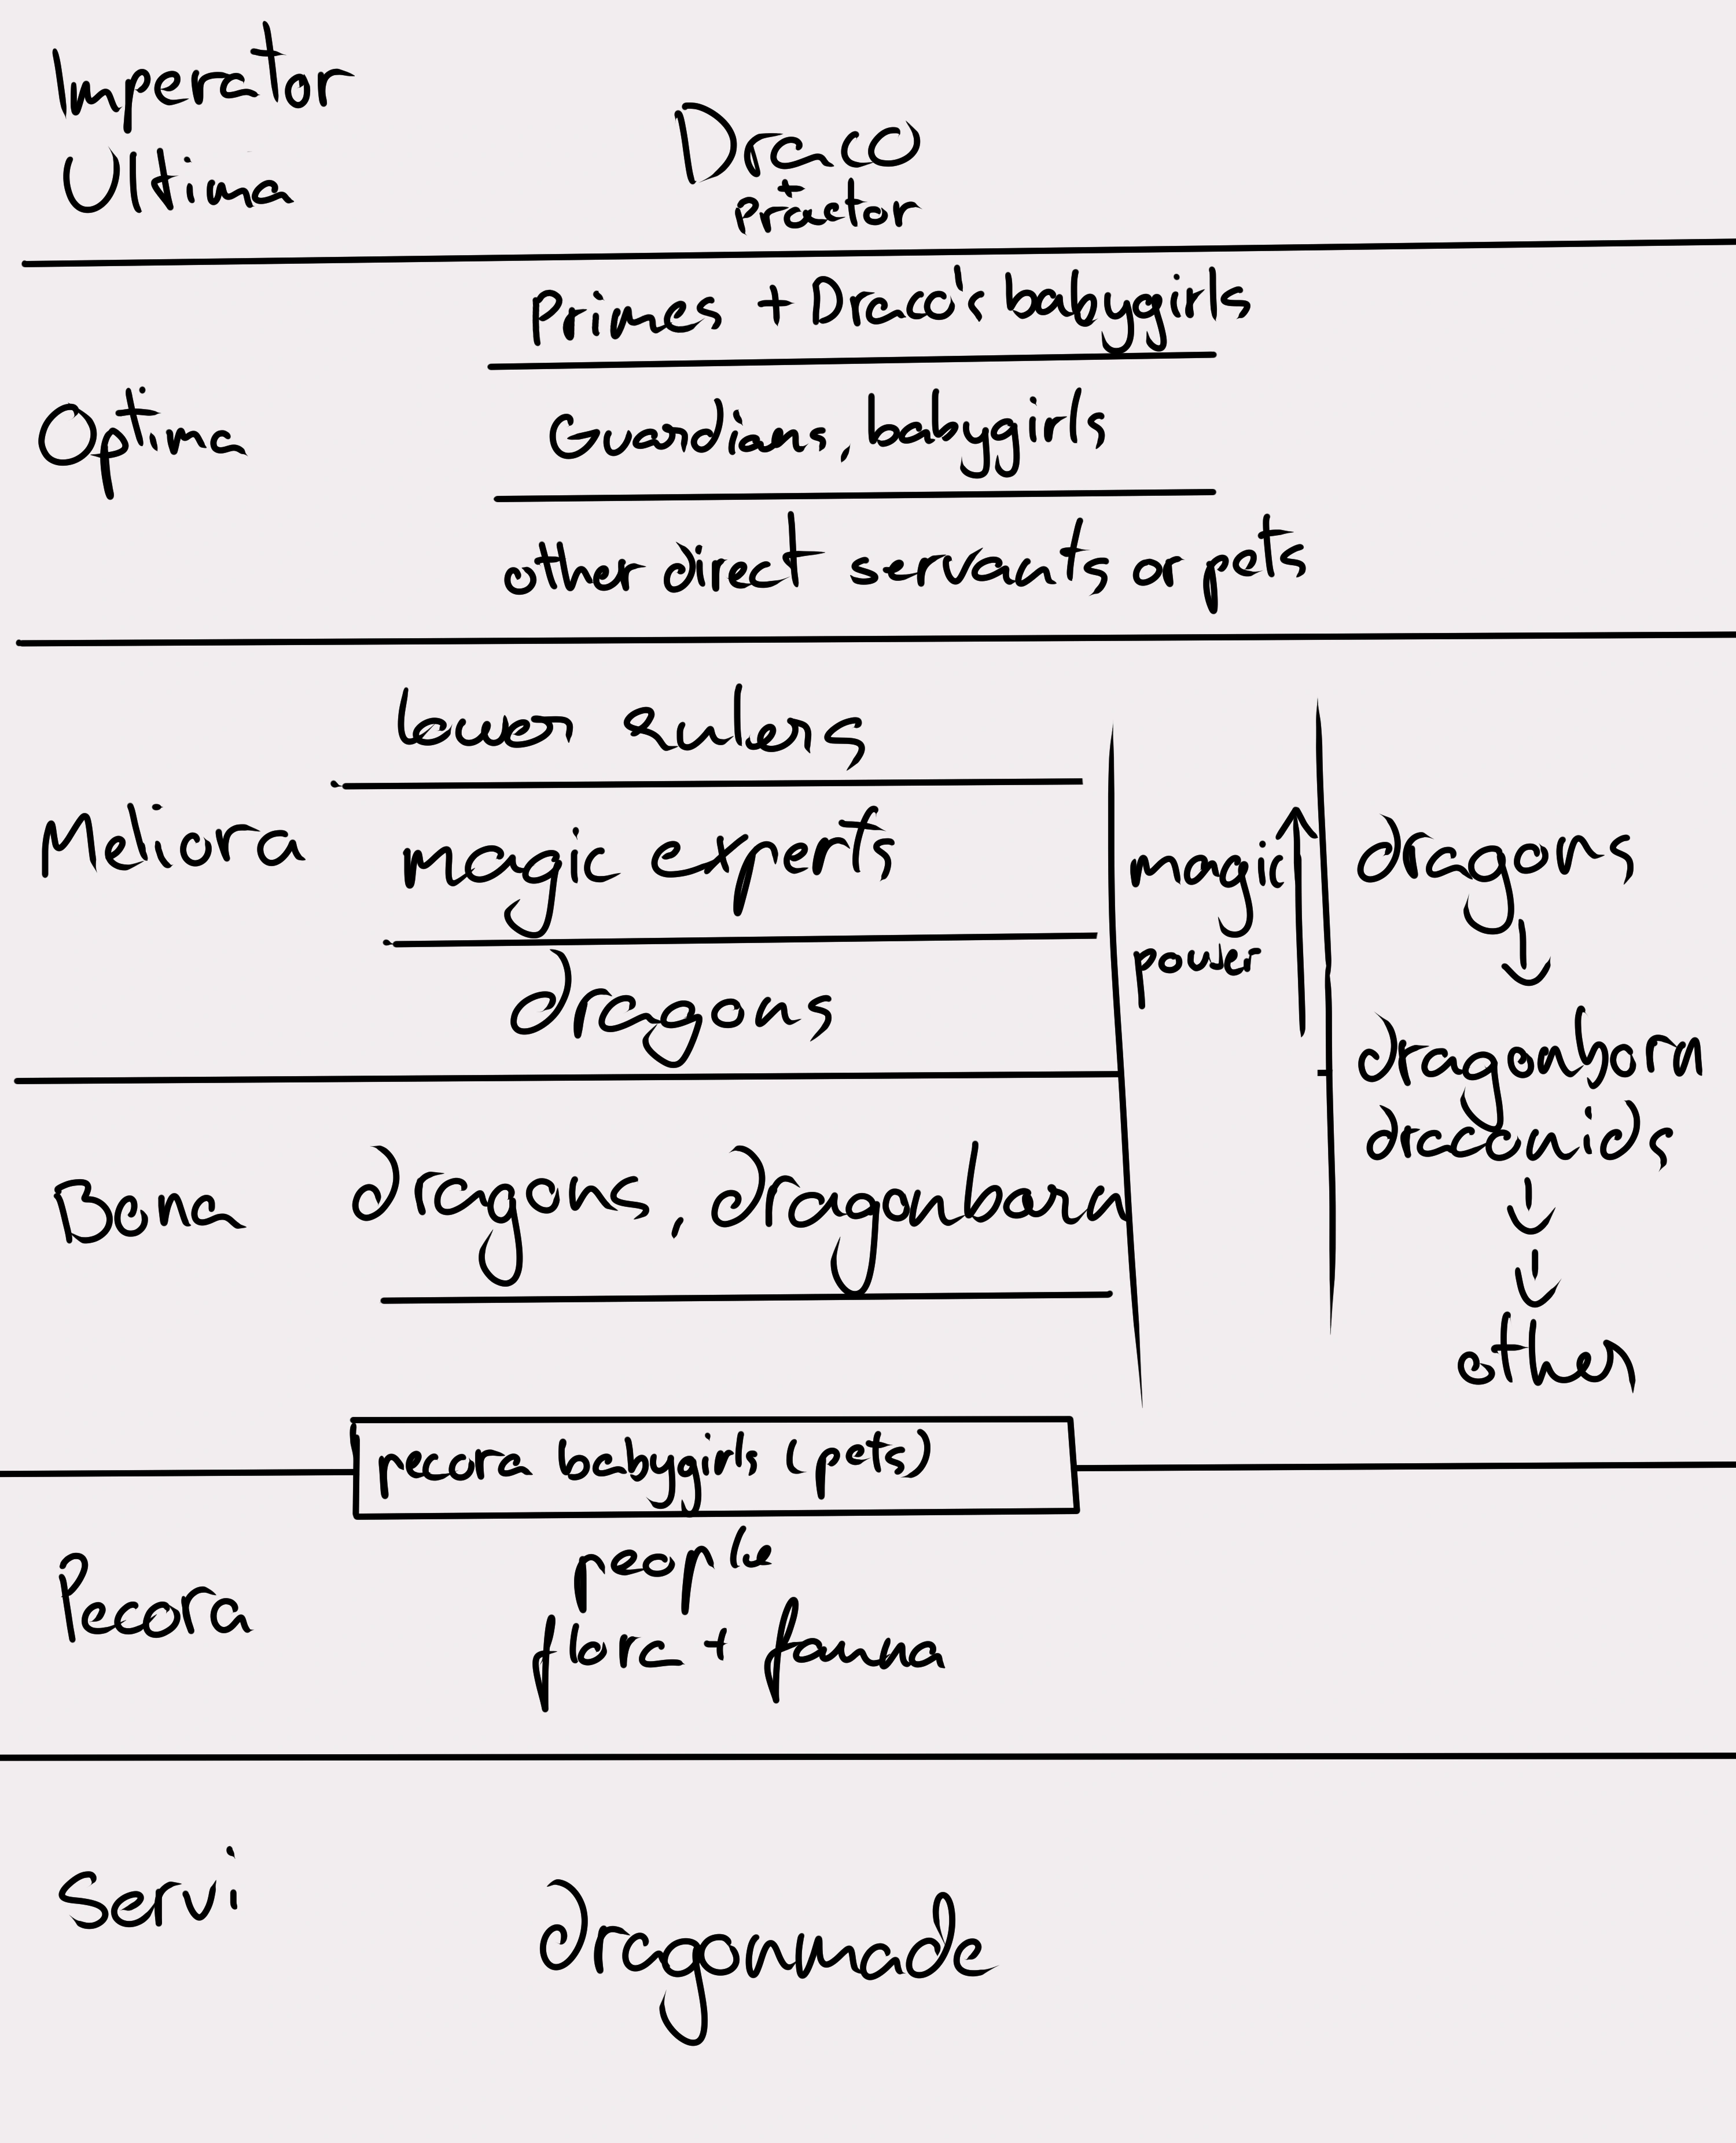 Imperator
Ultima
Draco
protactor
Primes + Draco's babygirls
Optima
Guardians, babygirls
other direct servants or pets
lower rulers
Meliora
magic experts
dragons
magic
power
dragons
dragonborn
dracanids
other
Bona
dragons, dragonborn
pecora babygirls (pets)
Pecora
people
flora + fauna
Servi
dragonmade